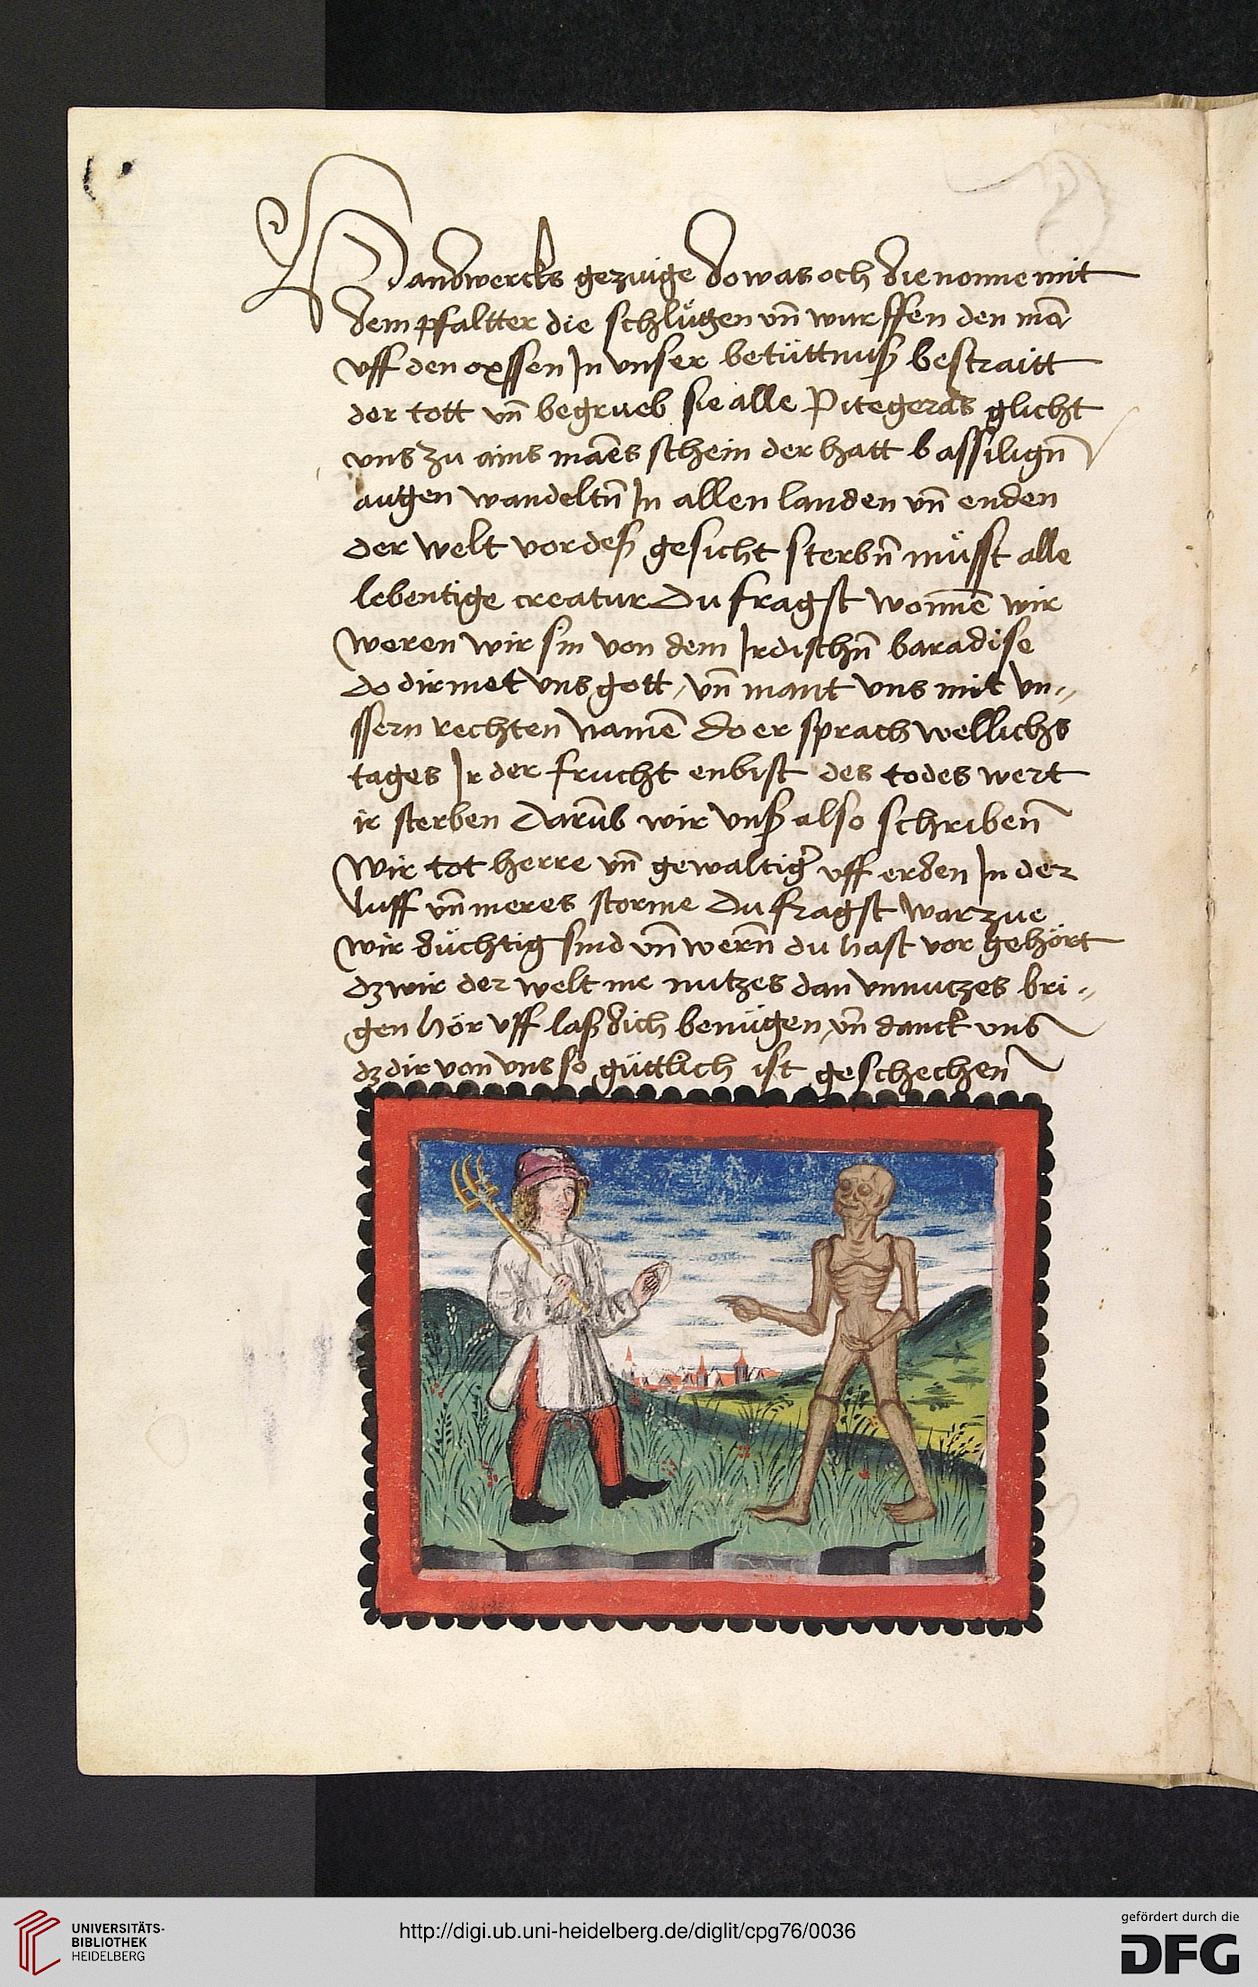 Handwercks gezuige do was och die nonne mit
dem pfaltter die schlůgen vn̄ wurffen den mā
vff den oxssen Jn vnser betüttnuß bestraitt
der tott vn̄ begrueb sie alle Pitegoras glicht
vns zu ains maēs schein der hatt bassilign̄
augen wandeltn̄ Jn allen landen vn̄ enden
der welt vor deß gesicht sterbn̄ müsst alle
lebentige creatur Du fragst wonnē wir
weren wir sin von dem Jrdischn̄ baradise
do dirmet vns gott / vn̄ mant vns mit vn„
ssern rechten Namē do er sprach wellichs
tages Jr der frucht enbist des todes wert
ir sterben Darūb wir vnß also schribenn̄
Wir tot herre vn̄ gewaltig̉ uff erden Jn der
luff vn̄ meres storme Du fragst warzue
wir düchtig sind vn̄ wern̄ du hast vor gehört
dz wir der welt me nutzes dan vnnuczes bri„
gen hör vff laß dich benügen vn̄ danck vns
dz dir von vns so güttlich ist geschechen
UNIVERSITÄTS-
BIBLIOTHEK
HEIDELBERG
http://digi.ub.uni-heidelberg.de/diglit/cpg76/0036
gefördert durch die
DFG